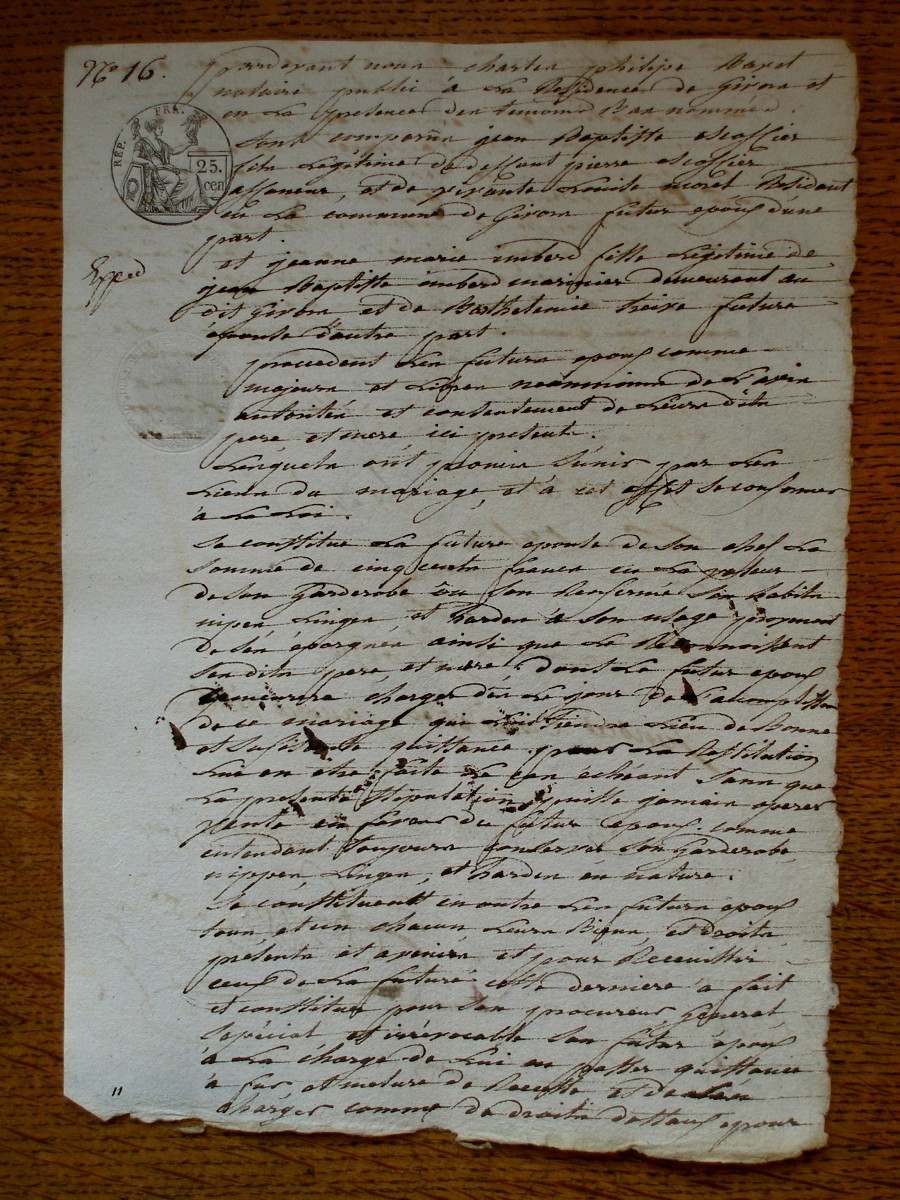 N° 16.
pardevant nous charles philipe Bayet
notaire public à La Residence de Giron et
en La presence des temoins Bas nommés.
Sont comparus jean Baptiste escoffier
fils Legitime de deffunt pierre escoffier
et de Louise moret Residant
en La commune de Giron futur epoux d'une
part
RÉP. FRA.
25.
cen
Expéd
et jeanne marie imberd fille Legitime de
jean Baptiste imberd marinier demeurant au
dit Giron et de Barthelemie future
epouse d'autre part.
procedent Les futurs epoux comme
majeurs et Libres neanmoins de L'avis
autorité et consentement de Leurs dits
pere et mere ici presents.
Lesquels ont promis S'unir par Les
Liens du mariage, et à cet effet se conformer
à La Loi.
Se constitue La future epouse de Son chef La
Somme de cinq cents francs en La valeur
de Son Garderobe où Son Renferme Son habits
nipes Linges et hardes à Son usage
de Ses épargnes ainsi que Le Reconnoissent
Sesdits pere et mere, dont Le futur epoux
demeurera charger dès Le jour de
de ce mariage qui Lui Tiendra Lieu de bonne
et Sufisante quittance pour La Restitution
Lui en etre faite Le cas échéant Sans que
La presente Stipulation puisse jamais operer
vente en faveur du futur epoux comme
entendant Toujours conserver Son Garderobe
nippes Linges, et hardes en nature.
Se constituent en outre Les futurs epoux
tous et un chacun Leurs Biens et droits
présents et avenirs et pour Receuillir
ceux de La future cette derniere à fait
et constitue pour Son procureur General
Special et irrévocable Son futur époux
à La charge de Lui en passer quittance
à fur et mesure de Recette et de
charger comme de droits dotaux
11